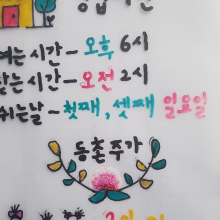 여는 시간 - 오후 6시
닫는 시간 - 오전 2시
쉬는날 - 첫째, 셋째 일요일
등촌주가